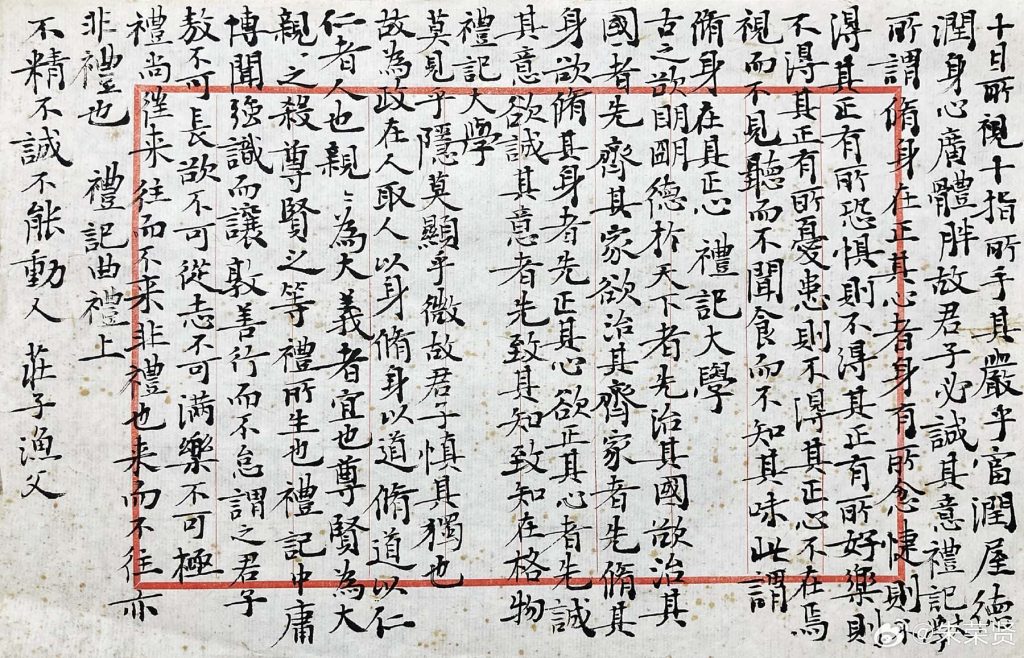 十目所視十指所手其嚴乎富潤屋德
潤身心廣體胖故君子必誠其意禮記大學
所謂脩身在正其心者身有所忿懥則不
得其正有所恐惧則不得其正有所好樂則
不得其正有所憂患則不得其正心不在焉
視而不見聽而不聞食而不知其味此謂
脩身在其正心 禮記大學
古之欲明朙德於天下者先治其國欲治其
國者先齊其家欲治其齊家者先脩其
身欲脩其身者先正其心欲正其心者先誠
其意欲誠其意者先致其知致知在格物
禮記大學
莫見乎隱莫顯乎微故君子慎其獨也
故為政在人取人以身脩身以道脩道以仁
仁者人也親〻為大義者宜也尊賢為大
親〻之殺尊賢之等禮所生也 禮記中庸
博聞強識而讓敦善行而不怠謂之君子
敖不可長欲不可從志不可満樂不可極
禮尚往来往而不来非禮也来而不往亦
非禮也 禮記曲禮上
不精不誠不能動人 莊子漁父
@朱荣贤